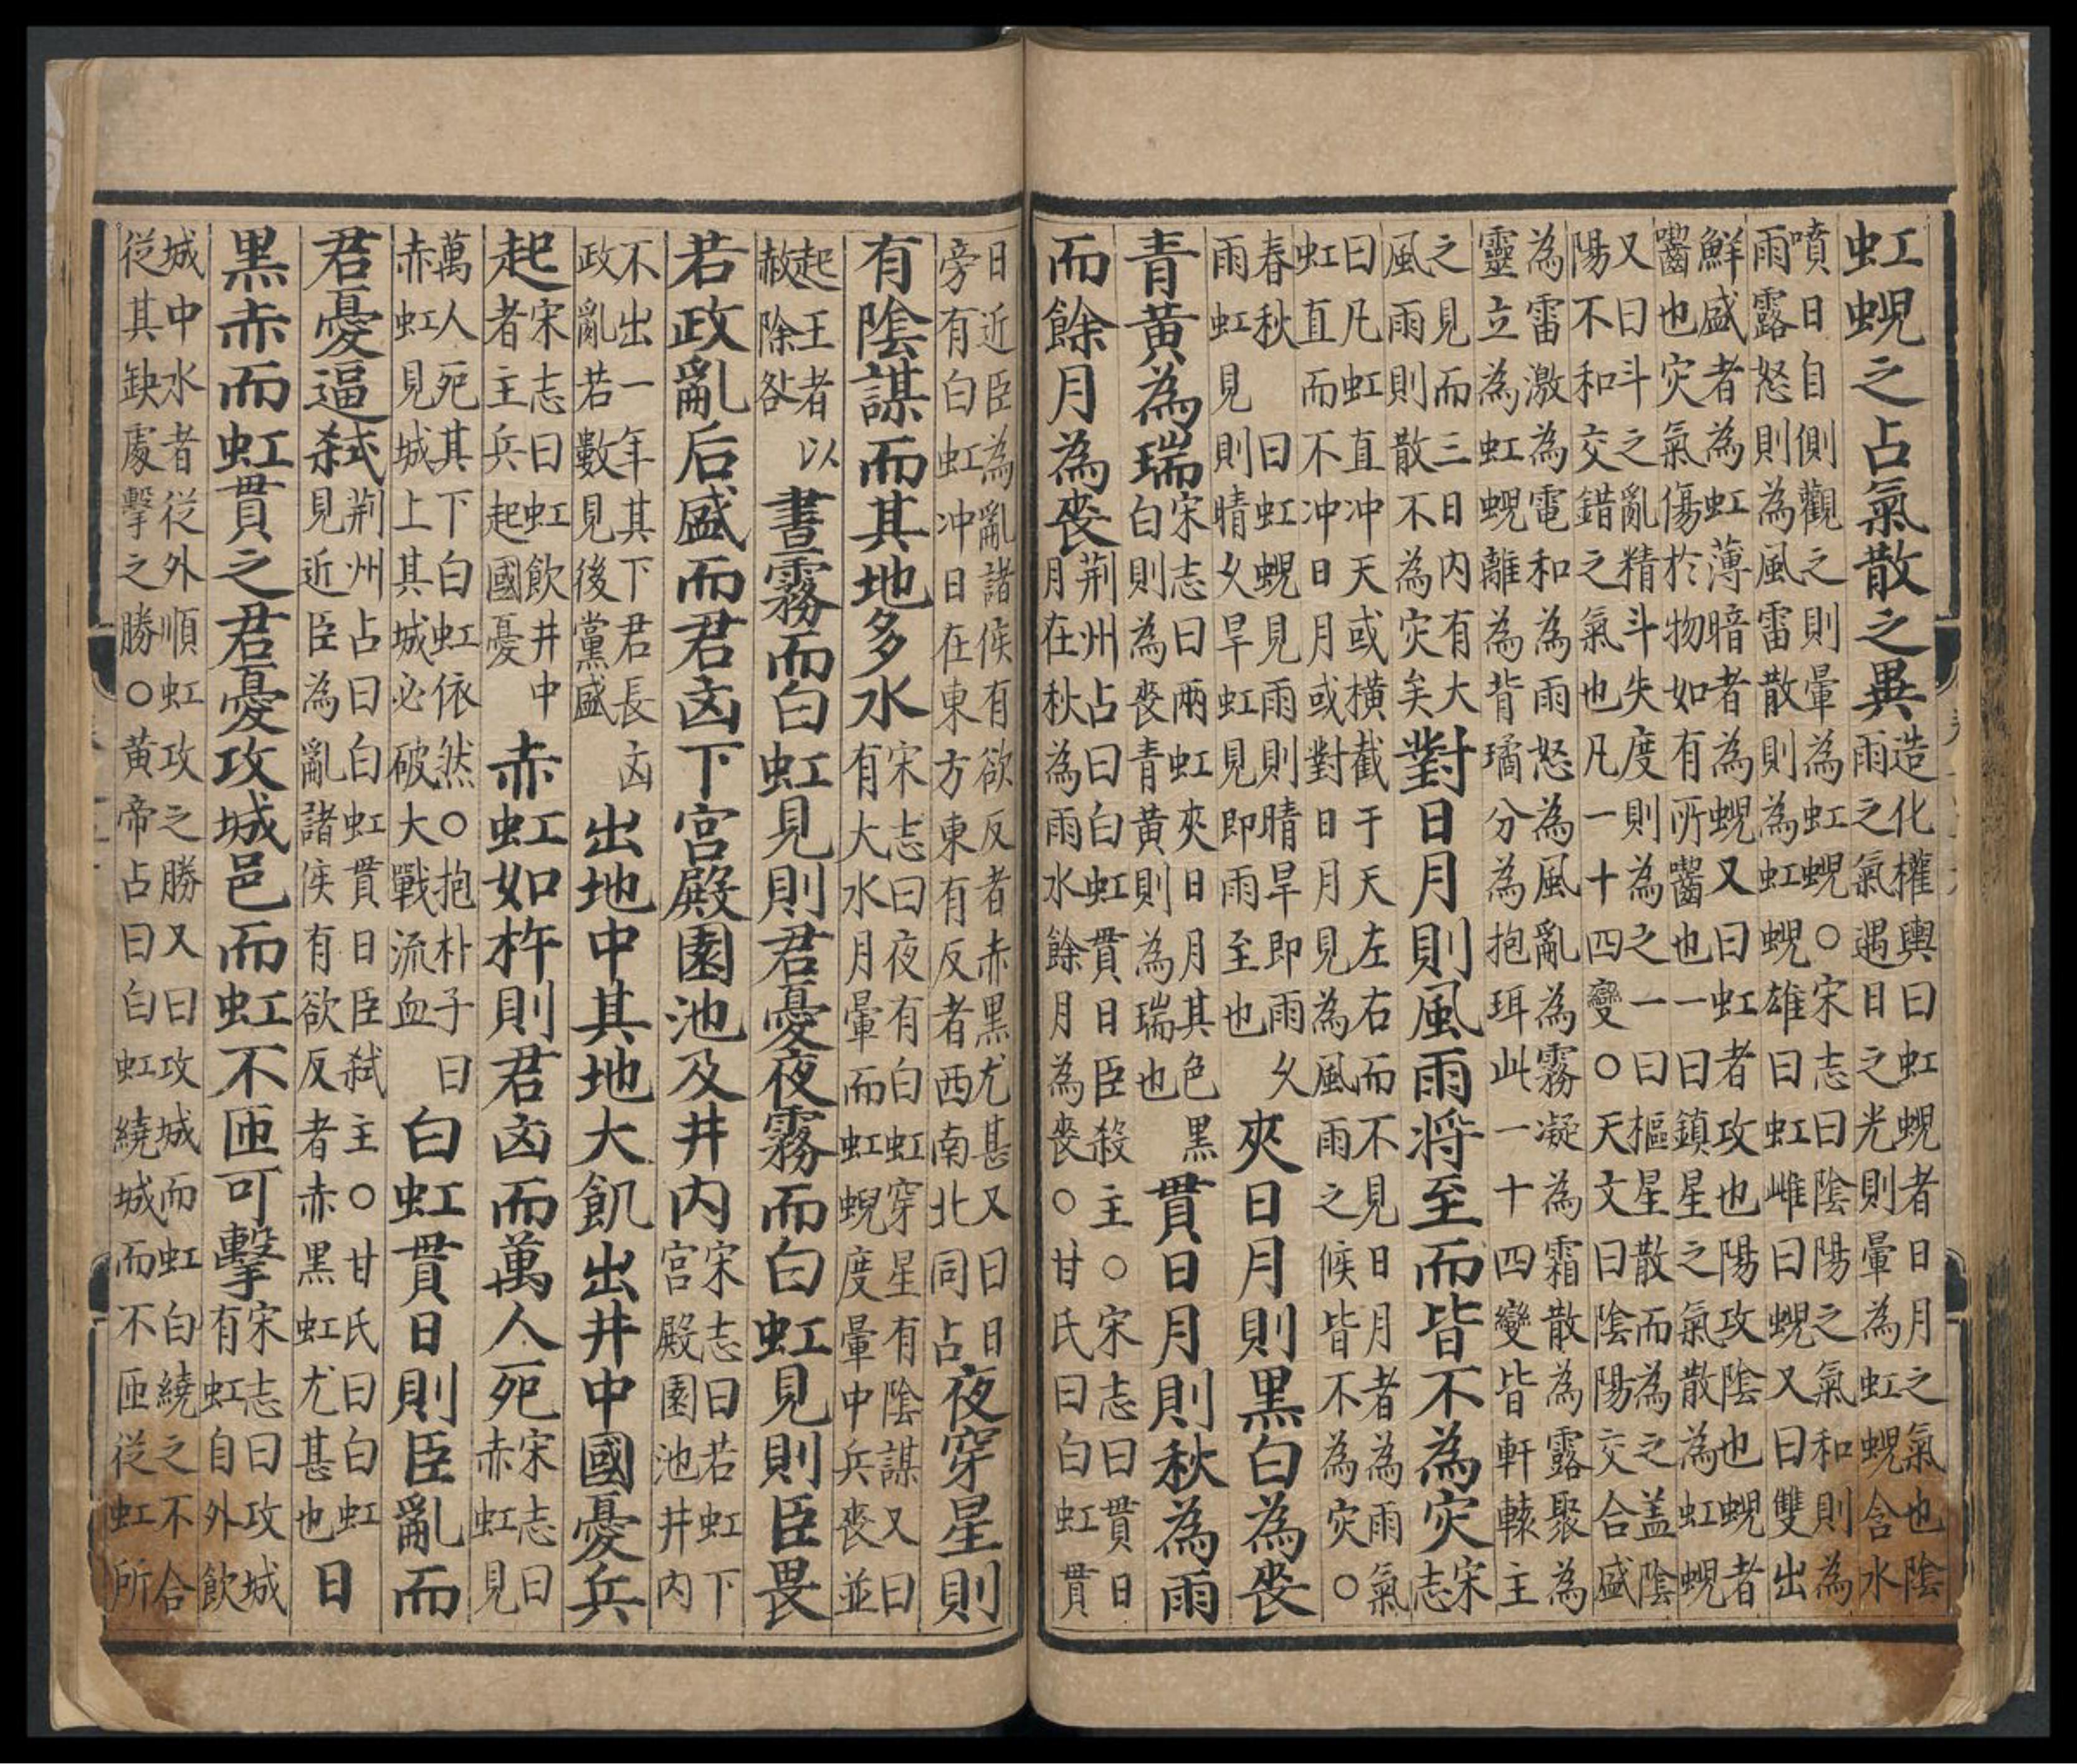 虹蜺之占氣散之異
造化權輿曰虹蜺者日月之氣也陰
雨之氣遇日之光則暈為虹蜺含水
噴日自側觀之則暈為虹蜺○宋志曰陰陽之氣和則為
雨露怒則為風雷散則為虹蜺雄曰虹雌曰蜺又曰雙出
鮮盛者為虹薄暗者為蜺又曰虹者攻也陽攻陰也蜺者
齧也灾氣傷於物如有所齧也一曰鎮星之氣散為虹蜺
又曰斗之亂精斗失度則為之一曰樞星散而為之盖陰
陽不和交錯之氣也凡一十四變○天文曰陰陽交合盛
為雷激為電和為雨怒為風亂為霧凝為霜散為露聚為
靈立為虹蜺離為背璚分為抱珥此一十四變皆軒轅主
之見而三日内有大
風雨則散不為灾矣
對日月則風雨将至而皆不為灾
宋
志
曰凡虹直冲天或横截于天左右而不見日月者為雨氣
虹直而不冲日月或對日月見為風雨之候皆不為灾○
春秋曰虹蜺見雨則晴旱即雨久
雨虹見則晴久旱虹見即雨至也
夾日月則黒白為喪
青黄為瑞
宋志曰兩虹夾日月其色黒
白則為喪青黄則為瑞也
貫日月則秋為雨
而餘月為喪
荆州占曰白虹貫日臣殺主○宋志曰貫日
月在秋為雨水餘月為喪○甘氏曰白虹貫
日近臣為亂諸侯有欲反者赤黒尤甚又曰日
旁有白虹冲日在東方東有反者西南北同占
夜穿星則
有陰謀而其地多水
宋志曰夜有白虹穿星有陰謀又曰
有大水月暈而虹蜺度暈中兵喪並
起王者以
赦除咎
晝霧而白虹見則君憂夜霧而白虹見則臣畏
若政亂后盛而君凶下宫殿園池及井内
宋志曰若虹下
宫殿園池井内
不出一年其下君長凶
政亂若數見後黨盛
出地中其地大飢出井中國憂兵
起
宋志曰虹飲井中
者主兵起國憂
赤虹如杵則君凶而萬人死
宋志曰
赤虹見
萬人死其下白虹依然○抱朴子曰
赤虹見城上其城必破大戰流血
白虹貫日則臣亂而
君憂逼弑
荆州占曰白虹貫日臣弑主○甘氏曰白虹
見近臣為亂諸侯有欲反者赤黒虹尤甚也
日
黒赤而虹貫之君憂攻城邑而虹不匝可擊
宋志曰攻城
有虹自外飲
城中水者從外順虹攻之勝又曰攻城而虹白繞之不合
從其缺處擊之勝○黄帝占曰白虹繞城而不匝從虹所